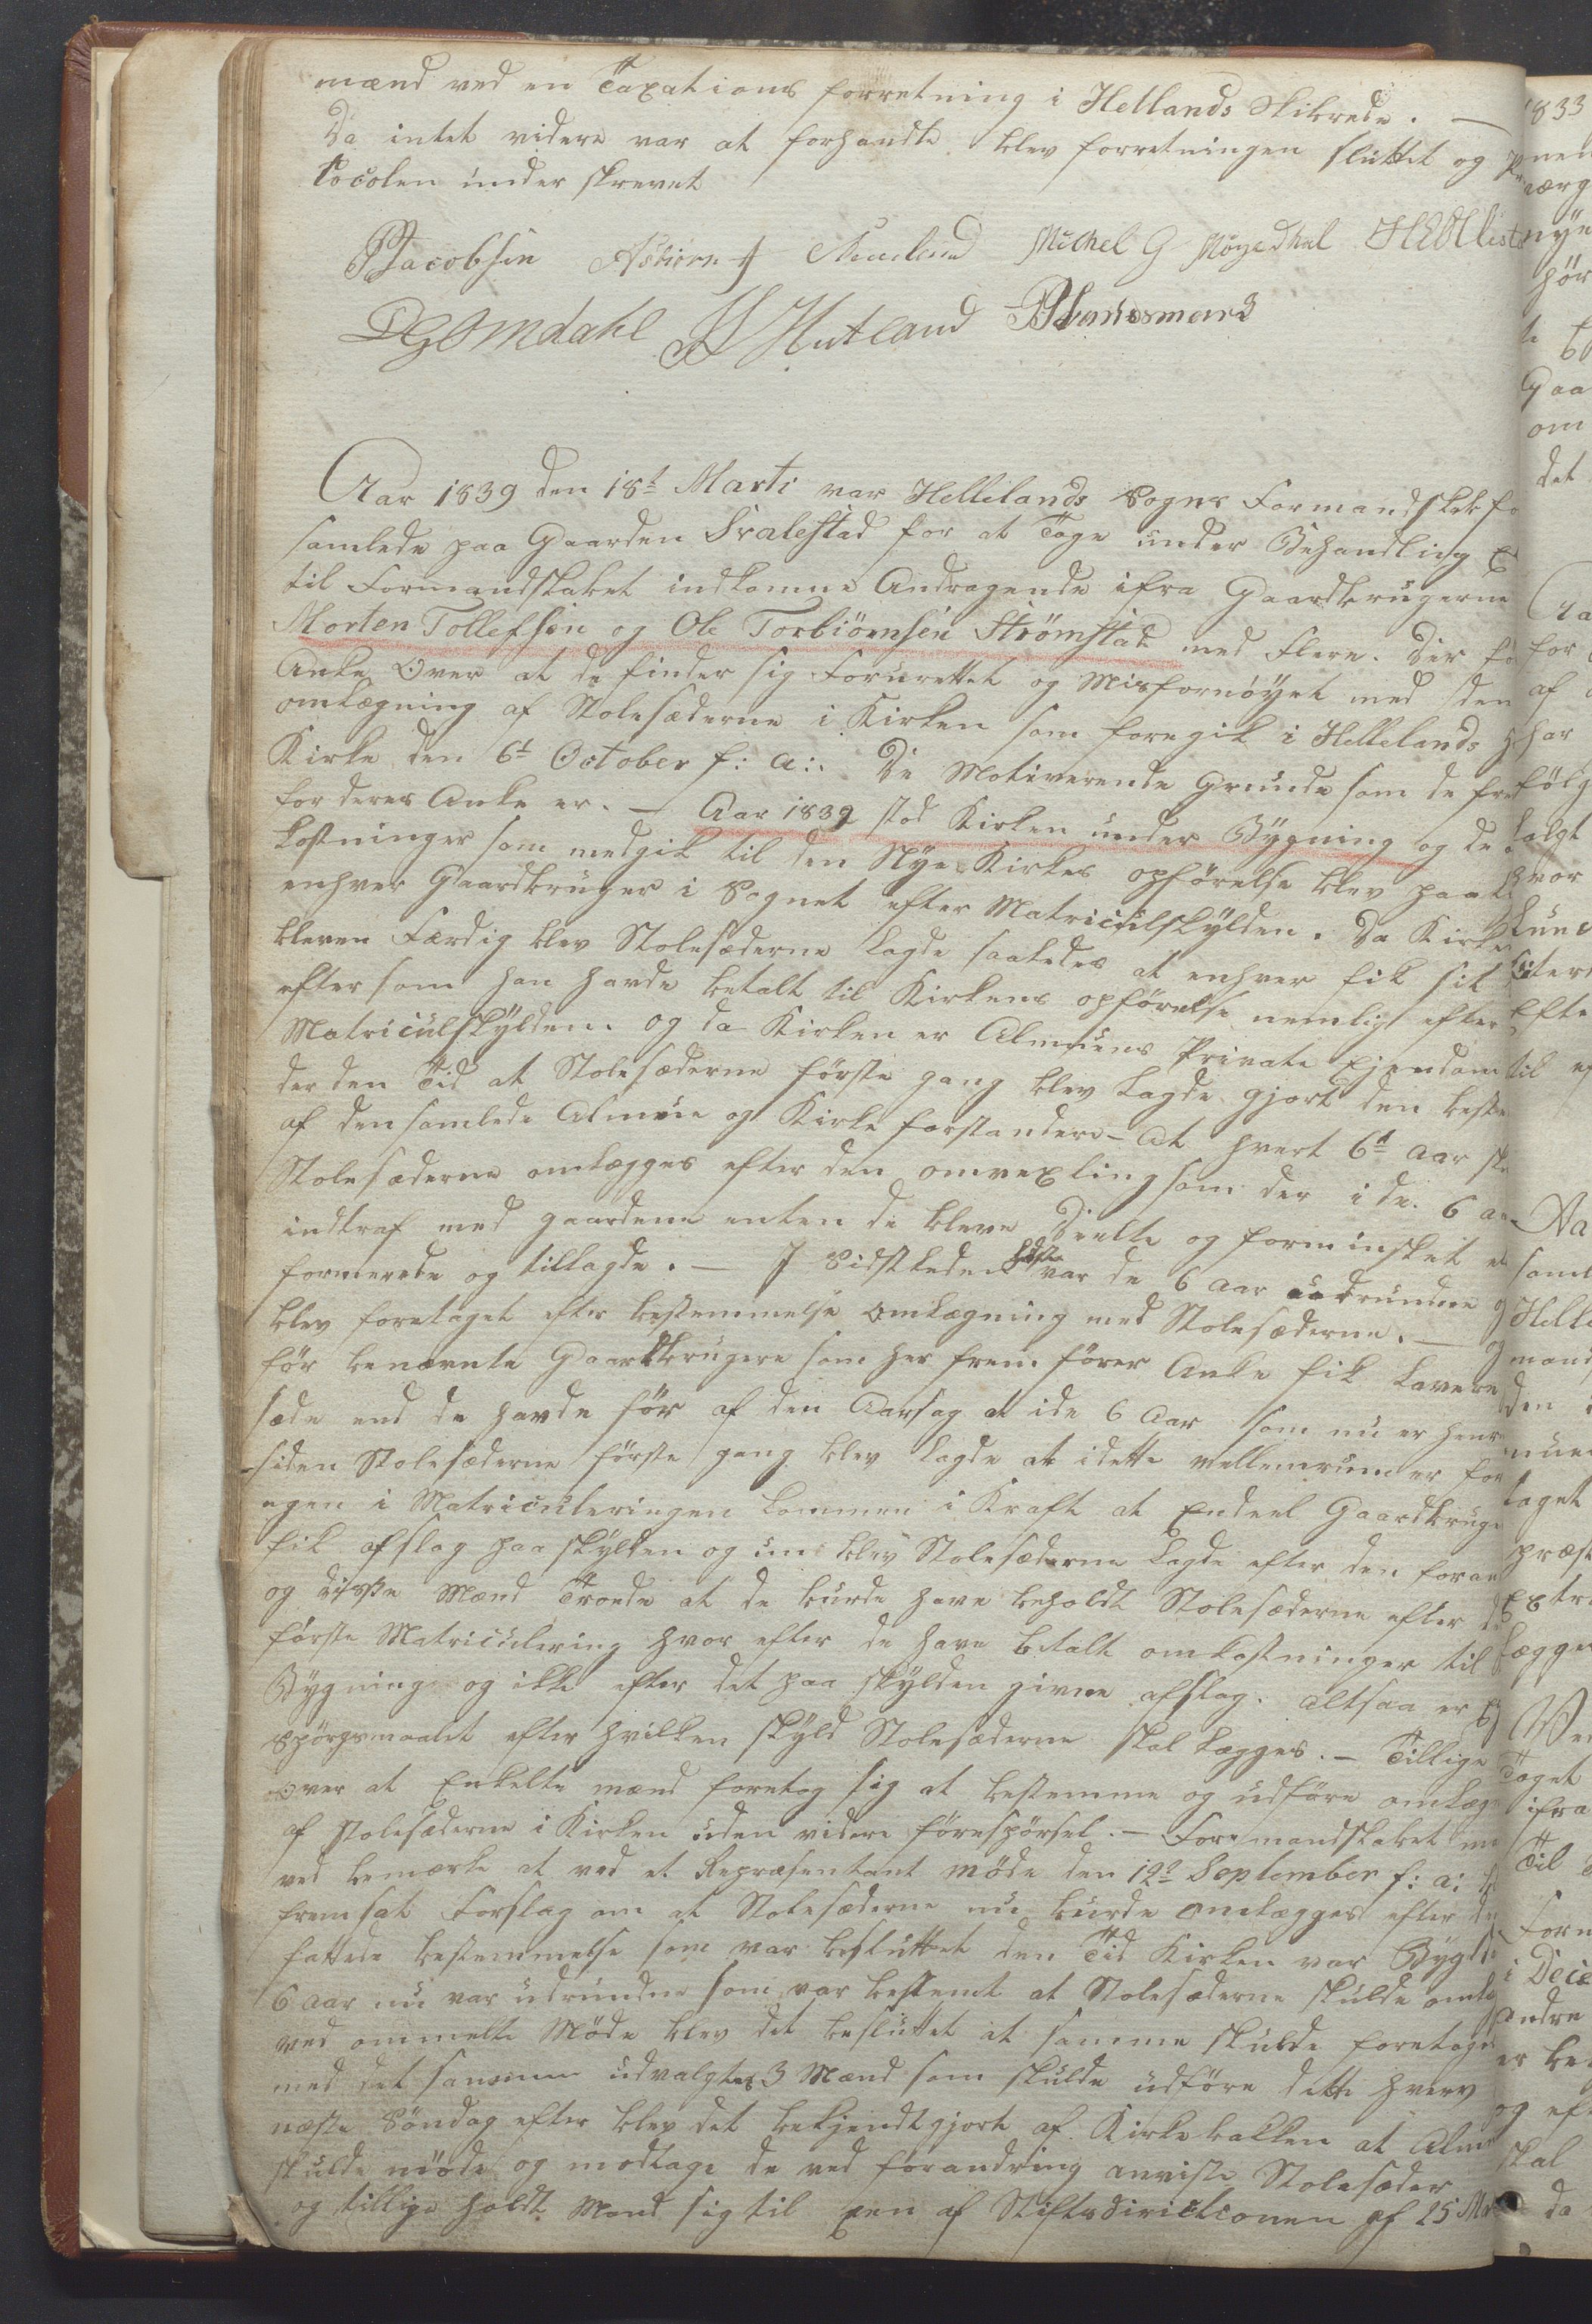 mænd ved en Taxations forretning i Hellands Skibrede. —
Da intet videre var at forhandle blev forretningen sluttet og Pro
tocolen underskrevet
PJacobsen Asbiørn J Nevland Michel G Møgedhal
OGOmdahl Hutland
Aar 1839 den 18t Marti var Hellelands Sogns Formandskab for
samlede paa Gaarden Svalestad for at Tage under Behandling E
til Formandskabet indkomne Andragende ifra Gaardbrugerne
Morten Tollefsen og Ole Torbiørnsen Strømstad med Flere. Der fø
Anke Over at de finder sig Forurettet og Misfornøyet med den
omlægning af Stolesæderne i Kirken som foregik i Hellelands
Kirke den 6t October f: a:. De Motiverende Grunde som de fre
for deres Anke er. — Aar 1832 stod Kirken under Bygning og de
kostninger som medgik til den Nye Kirkes opførelse blev paa
enhver Gaardbruger i Sognet efter Matriculskylden. Da Kirken
bleven Færdig blev Stolesæderne Lagde saaledes at enhver fik sit
eftersom han havde betalt til Kirkens opførelse nemlig efter
Matriculskylden. og da Kirken er Almuens Private Ejendom
der den Tid at Stolesæderne første gang blev Lagde gjort den beste
af den samlede Almue og Kirke forstandere - At hvert 6t Aar ska
Stolesæderne omlægges efter den omvexling som der i de 6 aar
indtraf med gaardene enten de bleve Deelte og forminsket el
formerede og tillagde. — I Sidstleden høst var de 6 aar udrundne og
blev foretaget efter bestemmelse Omlægning med Stolesæderne. — og
før benævnte Gaardbrugere som her frem fører Anke fik Lavere
sæde end de havde før af den Aarsag at i de 6 Aar som nu er henr
siden Stolesæderne første gang blev Lagde at i dette mellemrum er for
ngen i Matriculeringen kommen i Kraft at Endeel Gaardbruge
fik afslag paa skylden og nu blev Stolesæderne Lagde efter den foran
og disse Mænd Troede at de burde have beholdt Stolesæderne efter de
første Matriculering hvor efter de have betalt omkostninger til
Bygning og ikke efter det paa skylden givne afslag. altsaa er
Spørgsmaalet efter hvilken skyld Stolesæderne skal Lægges. — Tillige
over at Enkelte mænd foretog sig at bestemme og udføre omlæg
af Stolesæderne i Kirken uden videre forespørsel. — Formandskabet
ved bemærke at ved et Repræsentant møde den 12 September f: a:
fremsat Forslag om at Stolesæderne nu burde omlægges efter de
fattede bestemmelse som var besluttet den Tid Kirken var Bygd
6 aar nu var udrundne som var bestemt at Stolesæderne skulde omlæ
ved ommelte Møde blev det besluttet at samme skulde foretages
med det samme udvalgtes 3 Mænd som skulde udføre dette hverv
næste Søndag efter blev det bekjendtgjort af Kirkebakken at Alm
skulde møde og modtage de ved forandring anviste Stolesæder
og tillige holdt Mand sig til en af Stiftsdirectionen af 25 Ma
1833
nye
før
Gaa
om
det
for
af
har
følg
valgt
hvor
Efte
til
Aa
saml
Helle
mand
den
taget
præst
Extra
lægge
Taget
ifra
Til
Form
i Dece
andre
og eft
skal
da